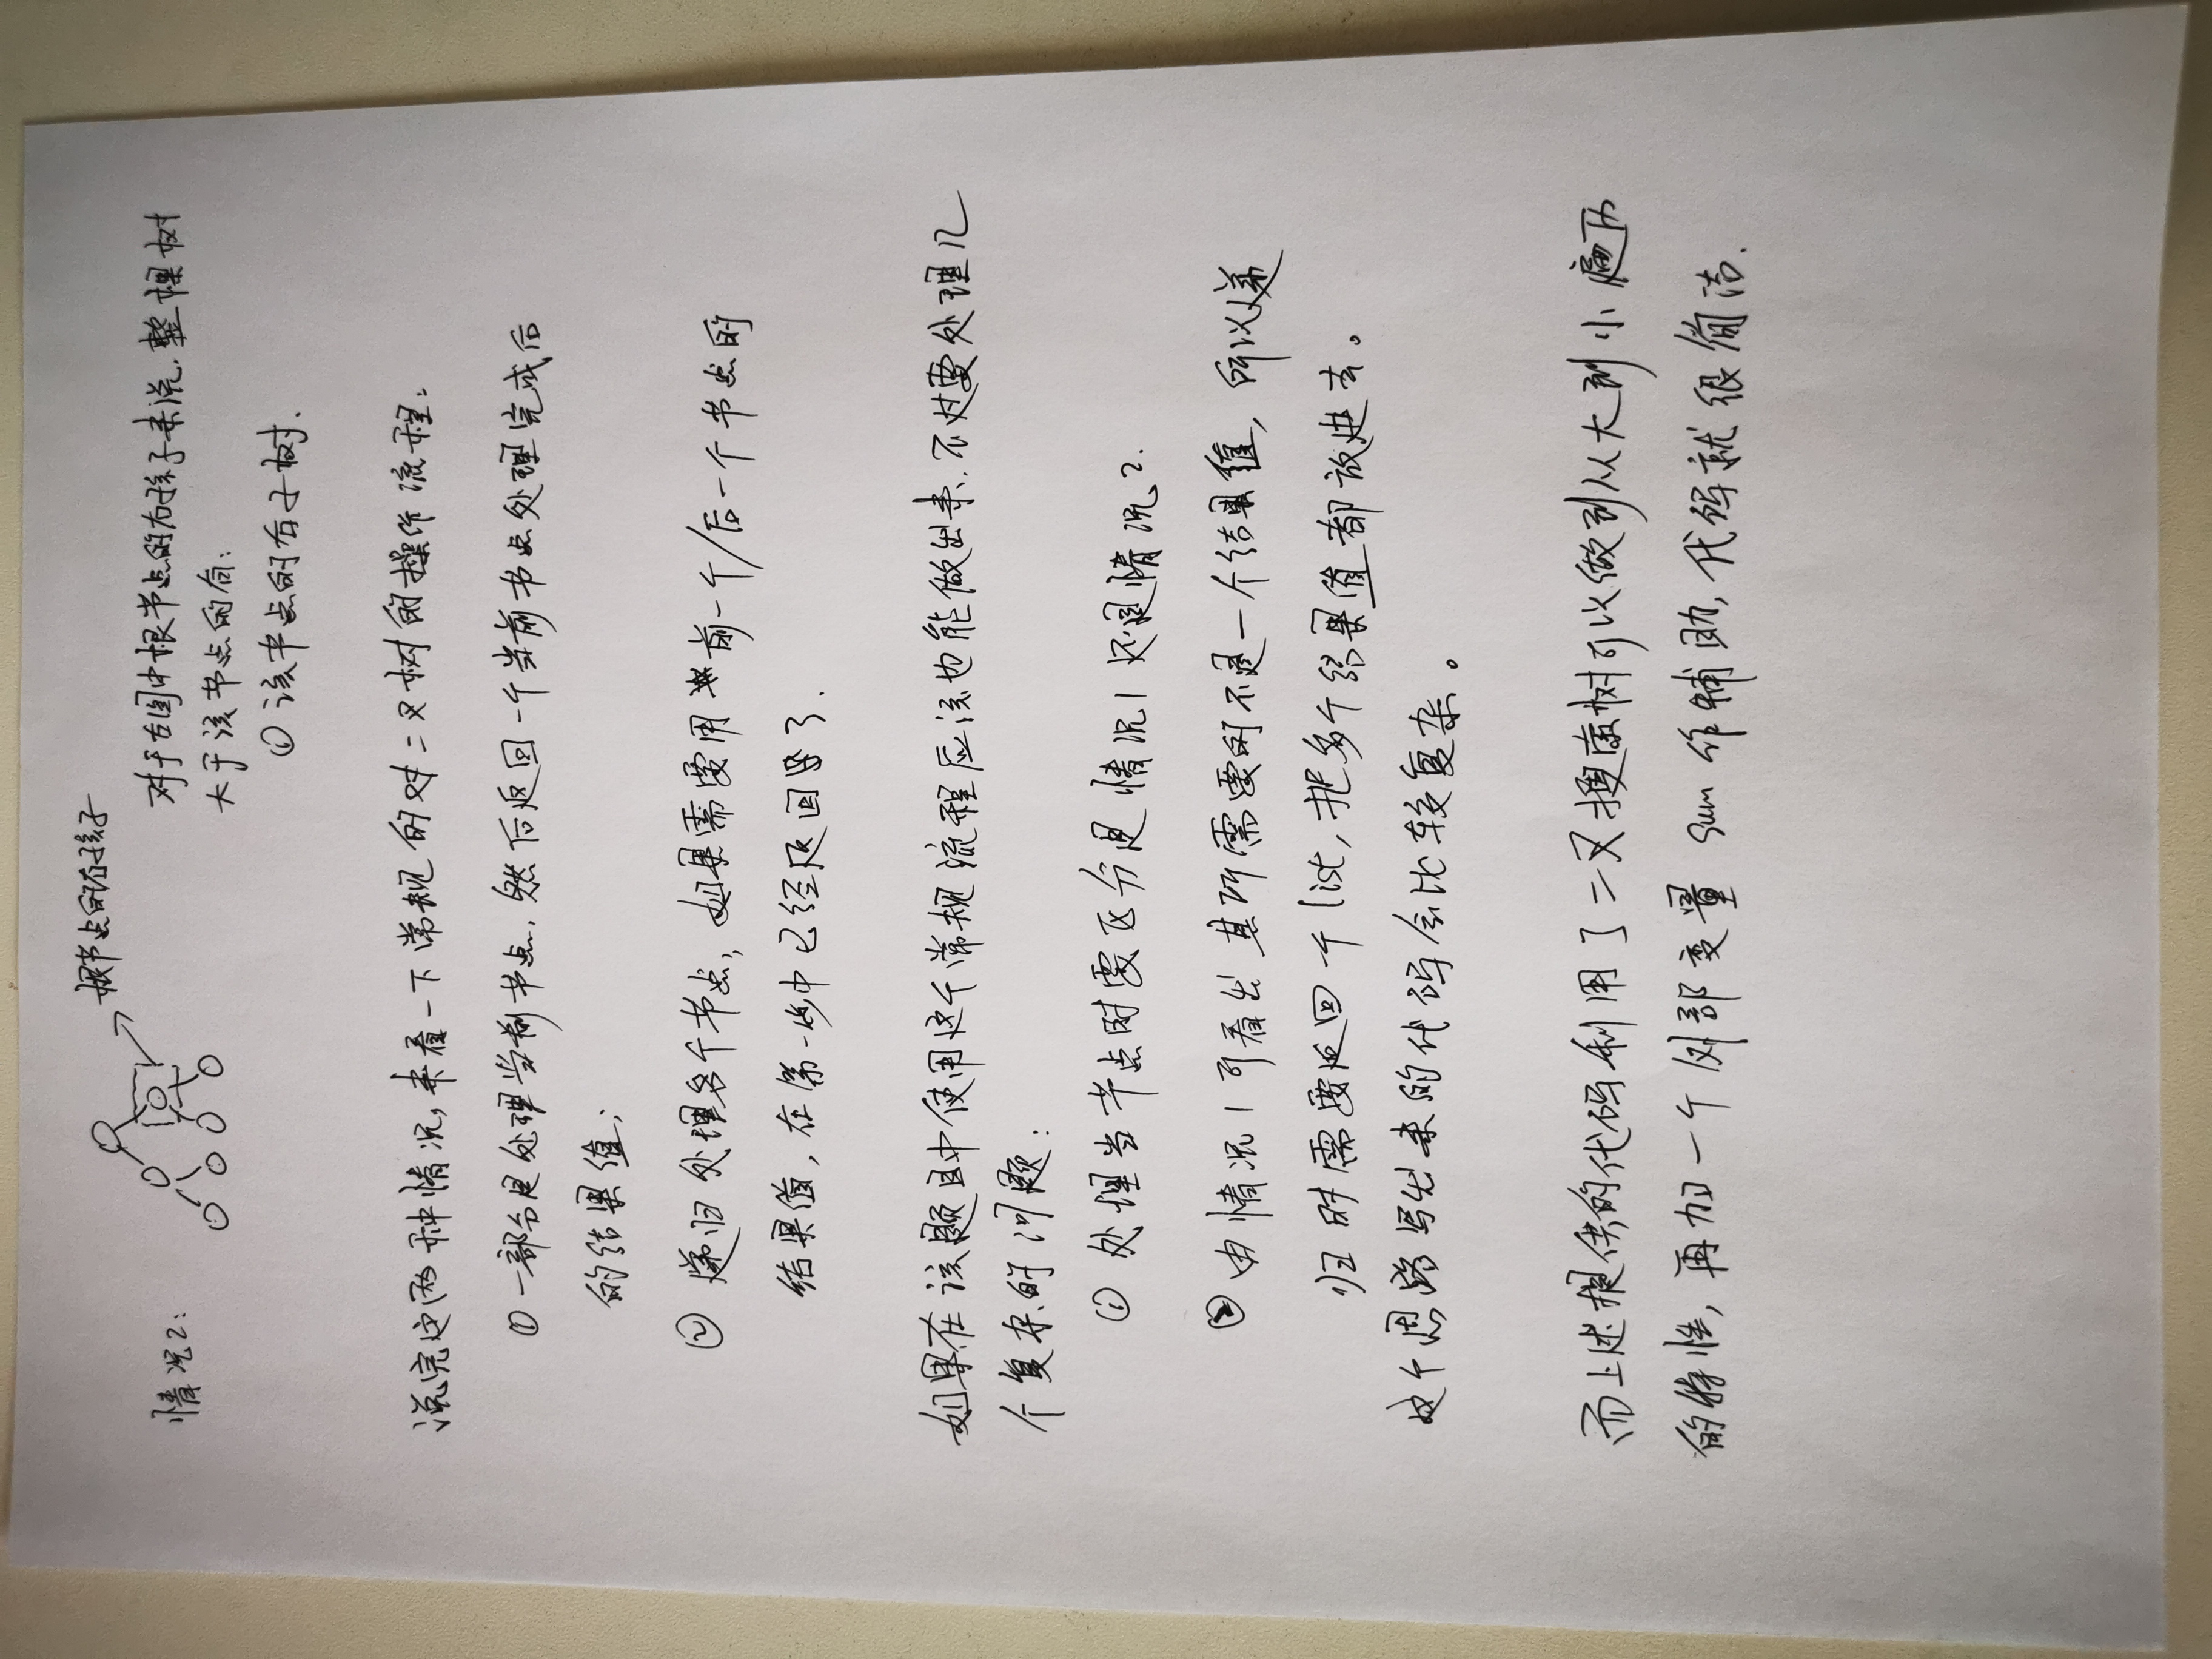 根节点的右孩子
情况2:
对于左图中根节点的右孩子来说,整棵树
大于该节点的有:
① 该节点的右子树.
说完这两种情况,来看一下常规的对二叉树的操作流程:
① 一部分是处理当前节点,然后返回一个当前节点处理完成后
的结果值;
② 递归处理各个节点,如果需要用 前一个/后一个节点的
结果值,在第一步中已经返回 了.
如果在该题目中使用这个常规流程应该也能做出来,不过要处理几
个复杂的问题:
① 处理当节点时要区分是情况1还是情况2.
② 由情况1可看出其所需要的不是一个结果值,所以递
归时需要返回一个list,把多个结果值都放进去。
这个思路写出来的代码会比较复杂。
而上述提供的代码利用了二叉搜索树可以做到从大到小遍历
的特性,再加一个外部变量 sum 作辅助,代码就很简洁.